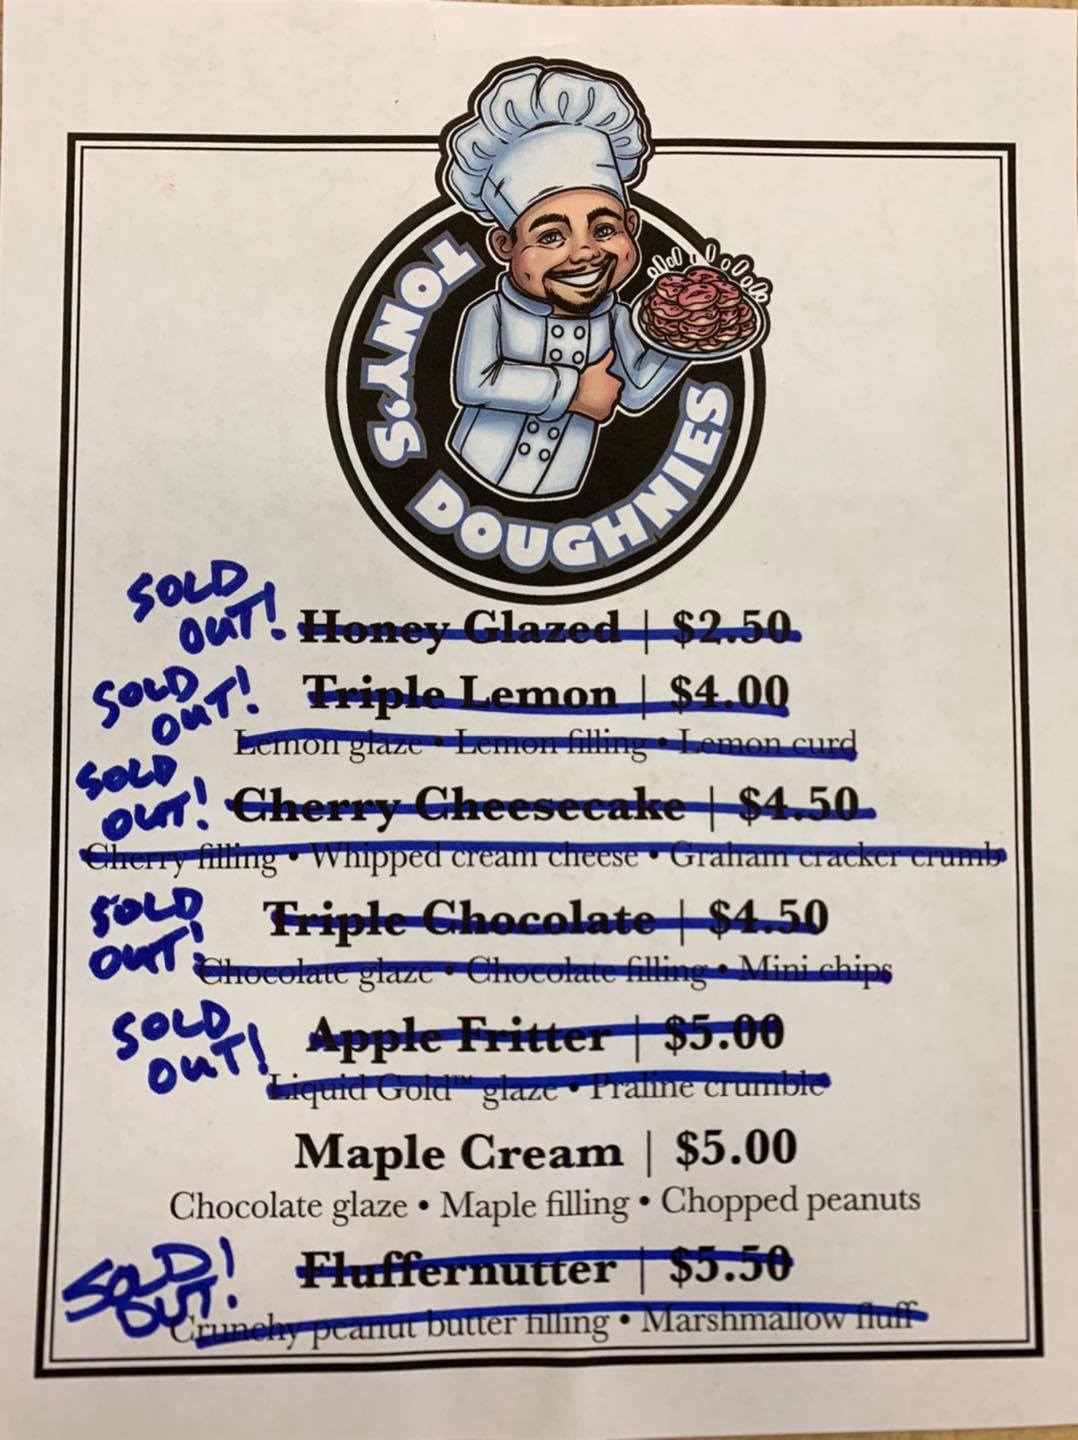 TONY'S
DOUGHNIES
SOLD
OUT!
Honey Glazed | $2.50
SOLD
OUT!
Triple Lemon | $4.00
Lemon glaze • Lemon filling • Lemon curd
SOLD
OUT!
Cherry Cheesecake | $4.50
Cherry filling • Whipped cream cheese • Graham cracker crumb
SOLD
OUT!
Triple Chocolate | $4.50
Chocolate glaze • Chocolate filling • Mini chips
SOLD
OUT!
Apple Fritter | $5.00
Liquid Gold™ glaze • Praline crumble
Maple Cream | $5.00
Chocolate glaze • Maple filling • Chopped peanuts
SOLD
OUT!
Fluffernutter | $5.50
Crunchy peanut butter filling • Marshmallow fluff